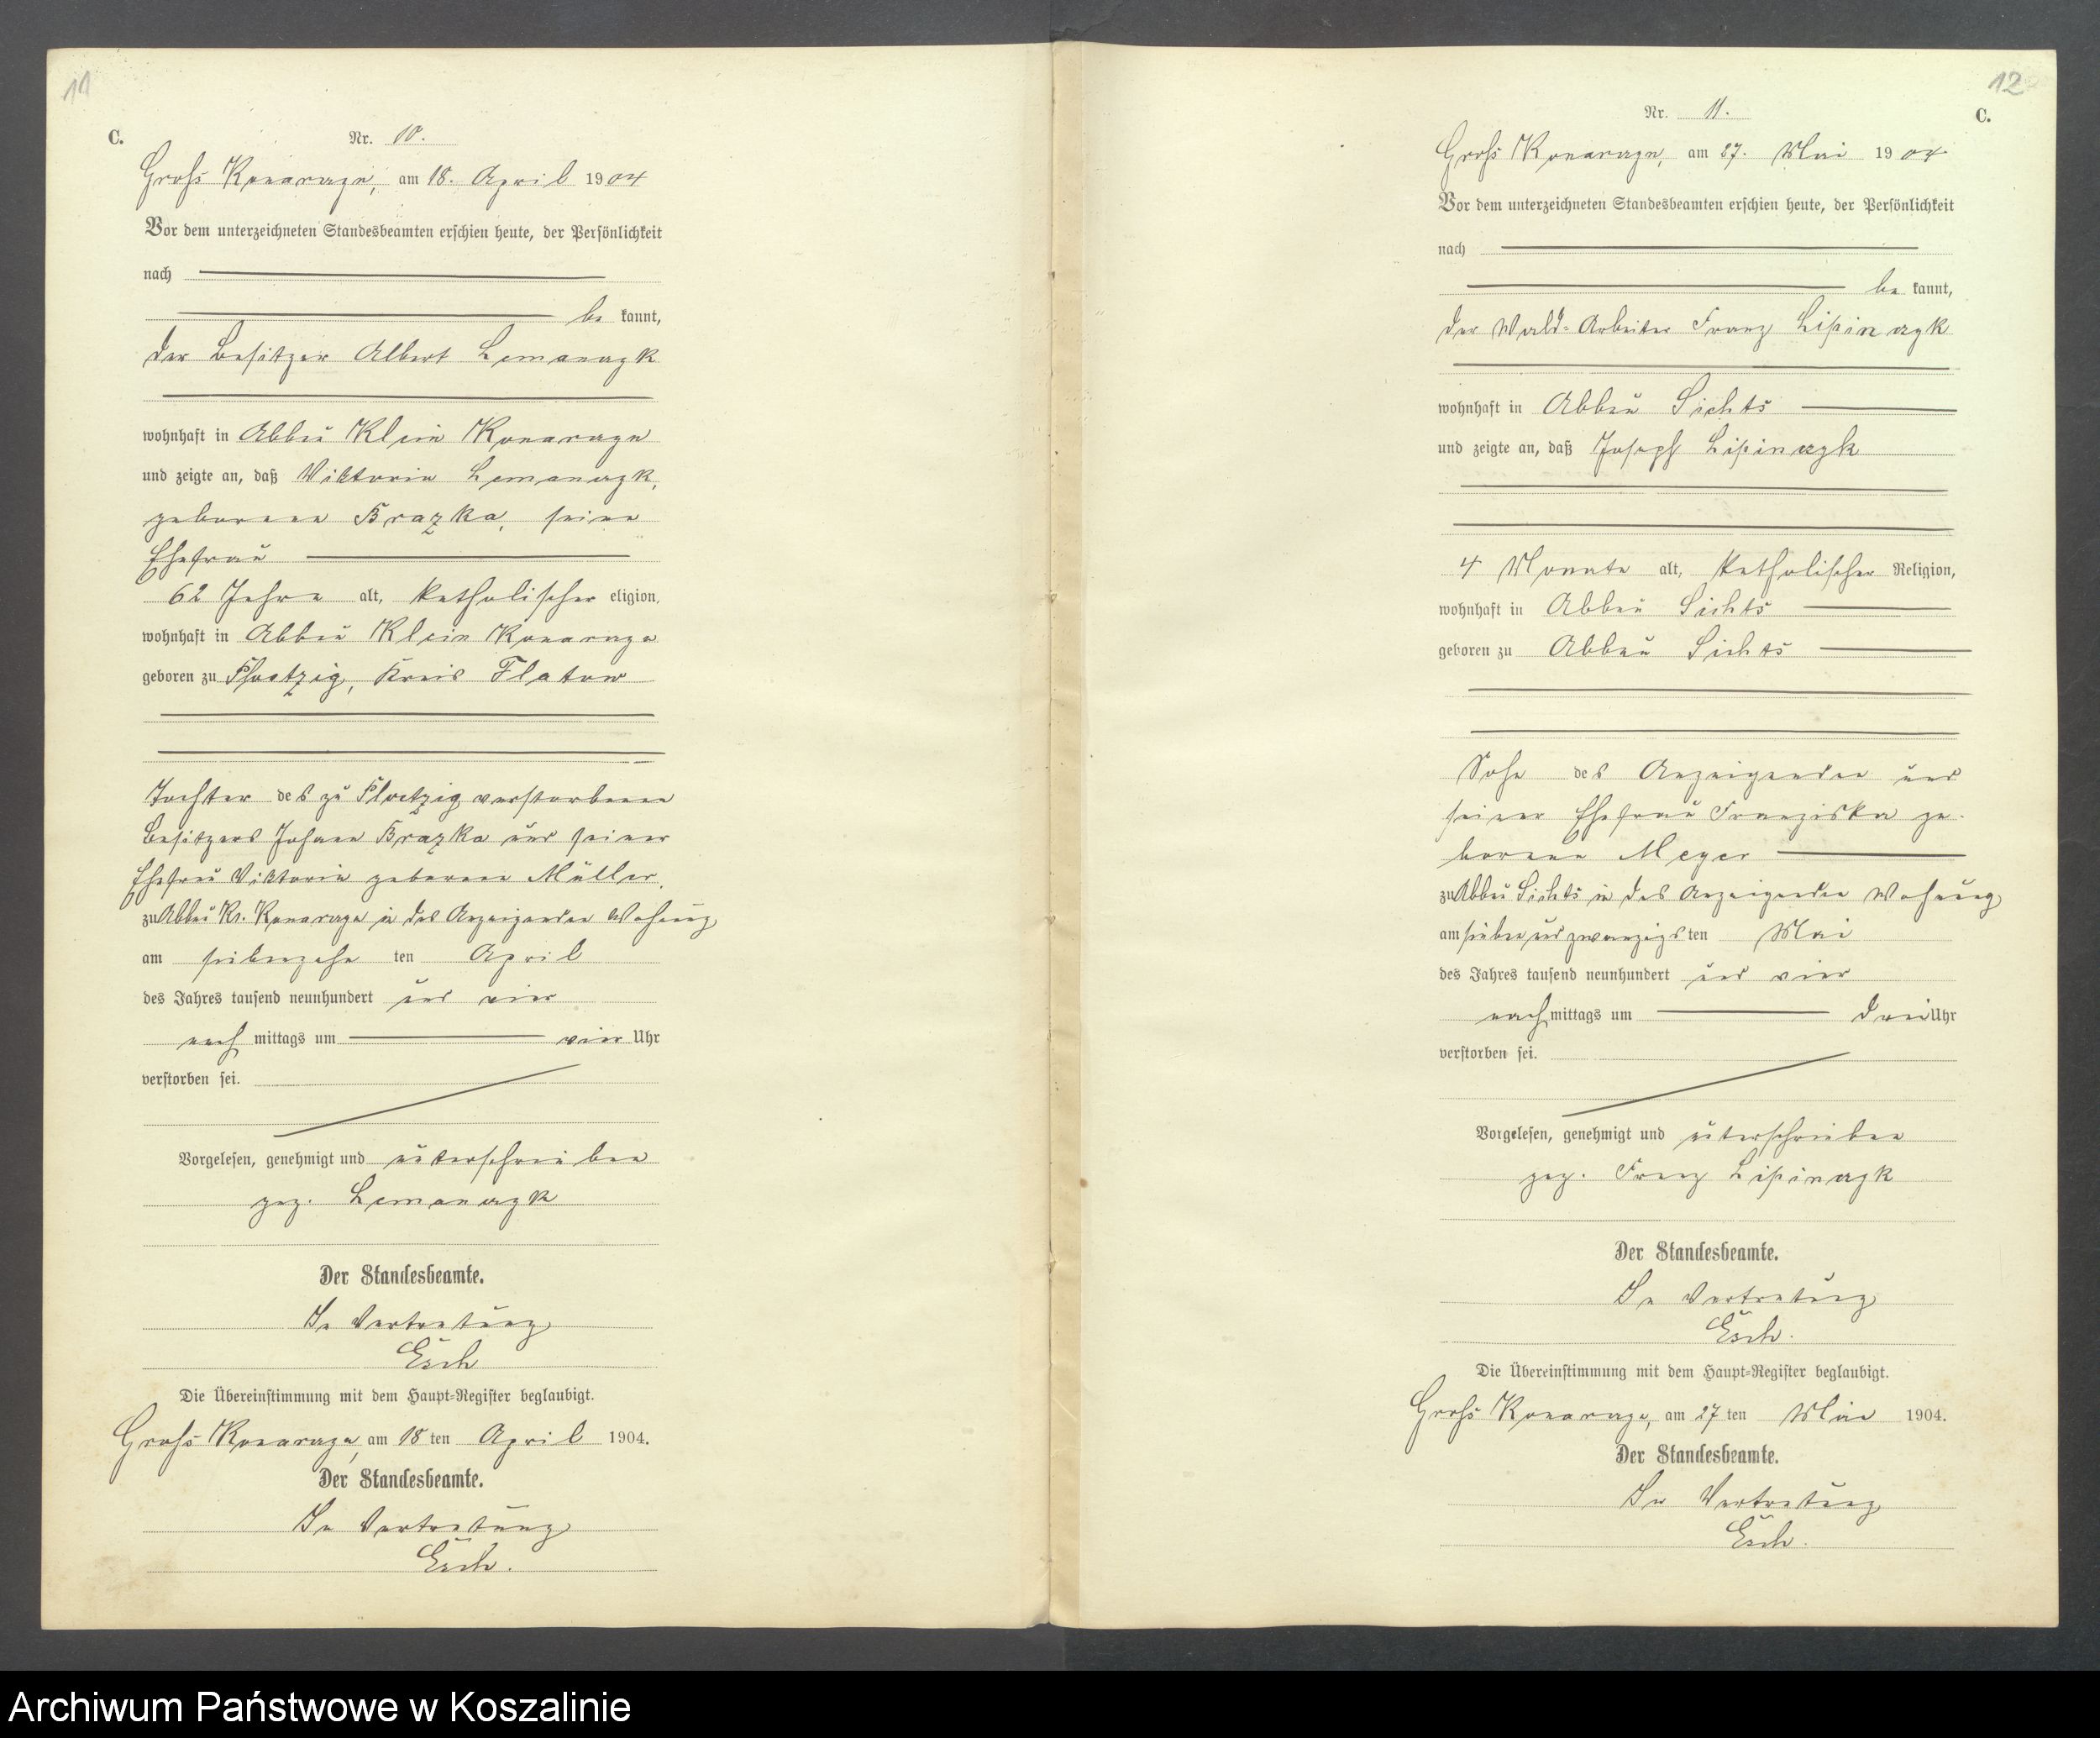 11
C.
Nr. 10.
Gross Konarzyn, am 18. April 1904
Vor dem unterzeichneten Standesbeamten erschien heute, der Persönlichkeit
nach
be kannt,
der Besitzer Albert Lemanczyk
wohnhaft in Abbau Klein Konarzyn
und zeigte an, daß Viktoria Lemanczyk,
geborene Brazka, seine
Ehefrau
62 Jahre alt, katholischer eligion,
wohnhaft in Abbau Klein Konarzyn
geboren zu Ploetzig, Kreis Flatow
Tochter des zu Ploetzig verstorbenen
Besitzers Johann Brazka und seiner
Ehefrau Viktoria geborene Müller,
zu Abbau Kl. Konarzyn in des Anzeigenden Wohnung
am siebenzehn ten April
des Jahres tausend neunhundert und vier
nach mittags um vier Uhr
verstorben sei.
Vorgelesen, genehmigt und unterschrieben
gez. Lemanczyk
Der Standesbeamte.
In Vertretung
Esch
Die Übereinstimmung mit dem Haupt-Register beglaubigt.
Gross Konarzyn, am 18 ten April 1904.
Der Standesbeamte.
In Vertretung
Esch.
12
Nr. 11.
C.
Gross Konarzyn, am 27. Mai 1904
Vor dem unterzeichneten Standesbeamten erschien heute, der Persönlichkeit
nach
be kannt,
der Wald-Arbeiter Franz Lipinczyk
wohnhaft in Abbau Lichts
und zeigte an, daß Joseph Lipinczyk
4 Monate alt, katholischer Religion,
wohnhaft in Abbau Lichts
geboren zu Abbau Lichts
Sohn des Anzeigenden und
seiner Ehefrau Franziska ge-
borene Meyer
zu Abbau Lichts in des Anzeigenden Wohnung
am sieben und zwanzigsten Mai
des Jahres tausend neunhundert und vier
nach mittags um drei Uhr
verstorben sei.
Vorgelesen, genehmigt und unterschrieben
gez. Franz Lipinczyk
Der Standesbeamte.
In Vertretung
Esch.
Die Übereinstimmung mit dem Haupt-Register beglaubigt.
Gross Konarzyn, am 27 ten Mai 1904.
Der Standesbeamte.
In Vertretung
Esch.
Archiwum Państwowe w Koszalinie